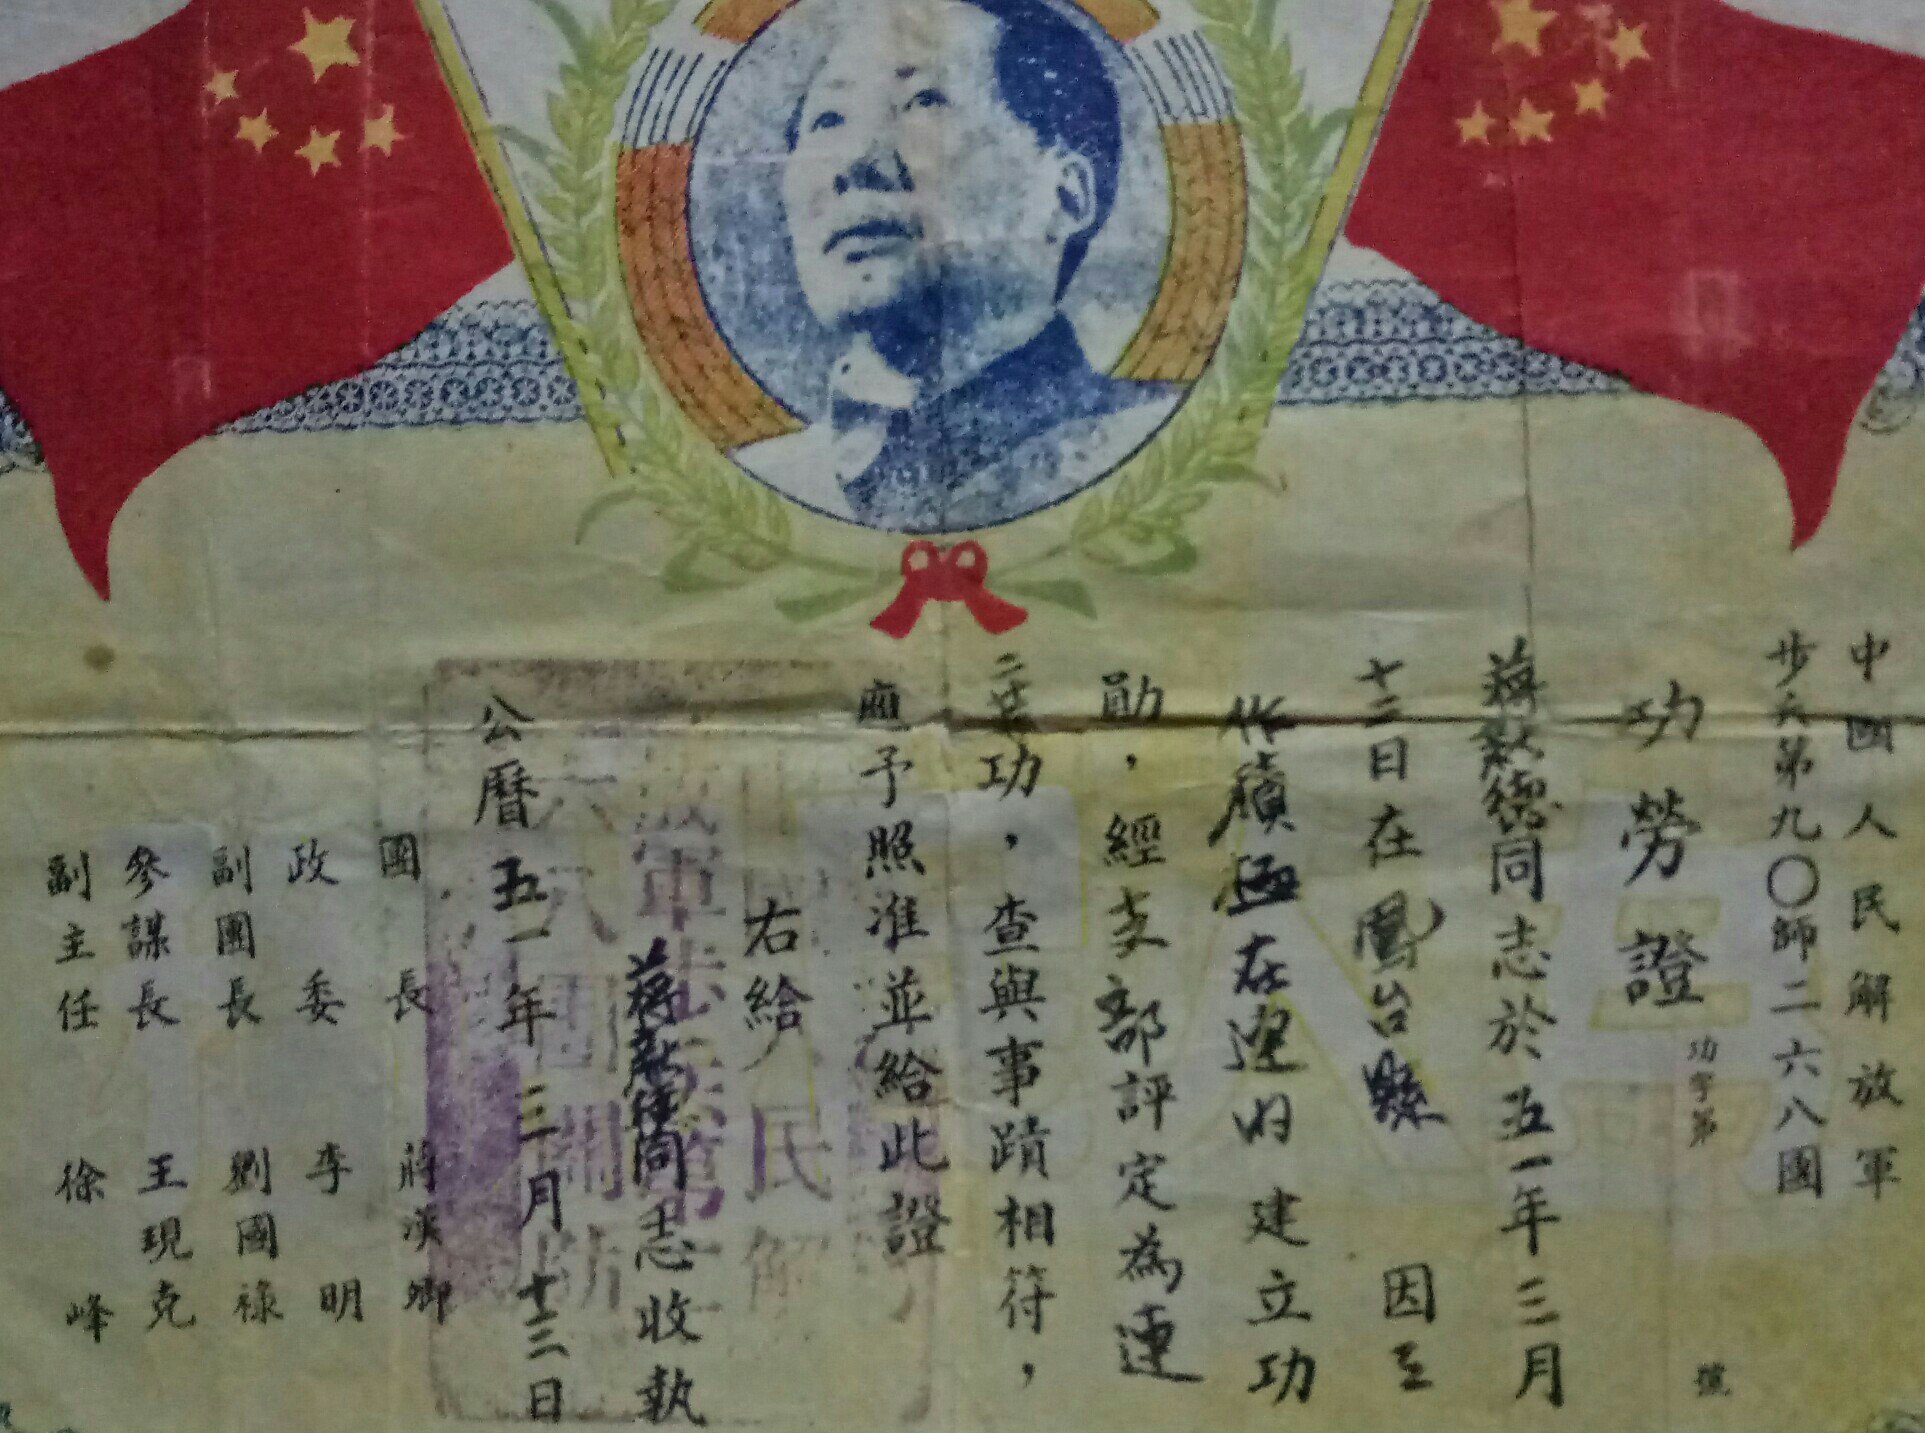 中國人民解放軍
步六第九〇師二六八團
功勞證
功字第 號
蔣獻德同志於五一年三月
十二日在鳳台縣 因工
作積極在連內建立功
勛，經支部評定為連
二等功，查與事蹟相符，
應予照准並給此證
右給
蔣獻德同志收執
公曆五一年三月十三日
團長 蔣漢卿
政委 李明
副團長 劉國祿
參謀長 王現克
副主任 徐峰